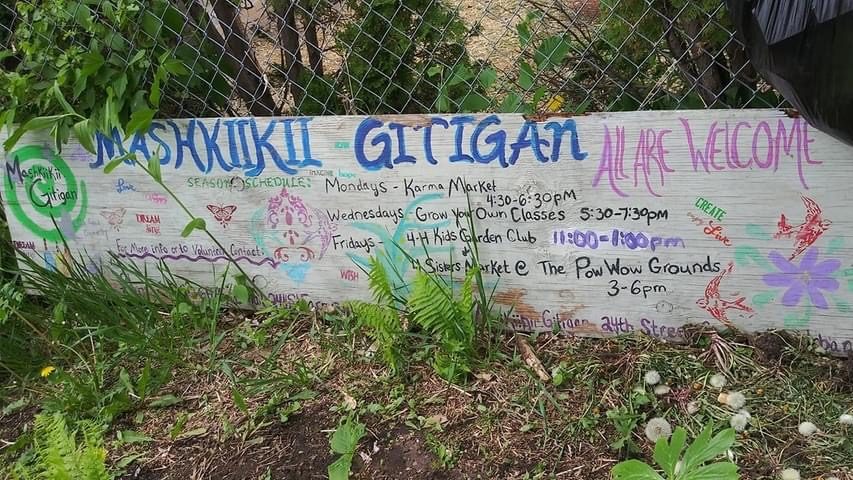 MASHKIIKII GITIGAN
ALL ARE WELCOME
Mashkiikii
Gitigan
SEASON SCHEDULE:
Mondays - Karma Market
4:30-6:30PM
Wednesdays - Grow your Own Classes 5:30-7:30pm
Fridays - 4-H Kids Garden Club 11:00-1:00pm
4 Sisters Market @ The PowWow Grounds
3-6pm
For More info or to Volunteer Contact:
Love
DREAM
DREAM
hope
WISH
CREATE
Love
Gitigan 24th Street